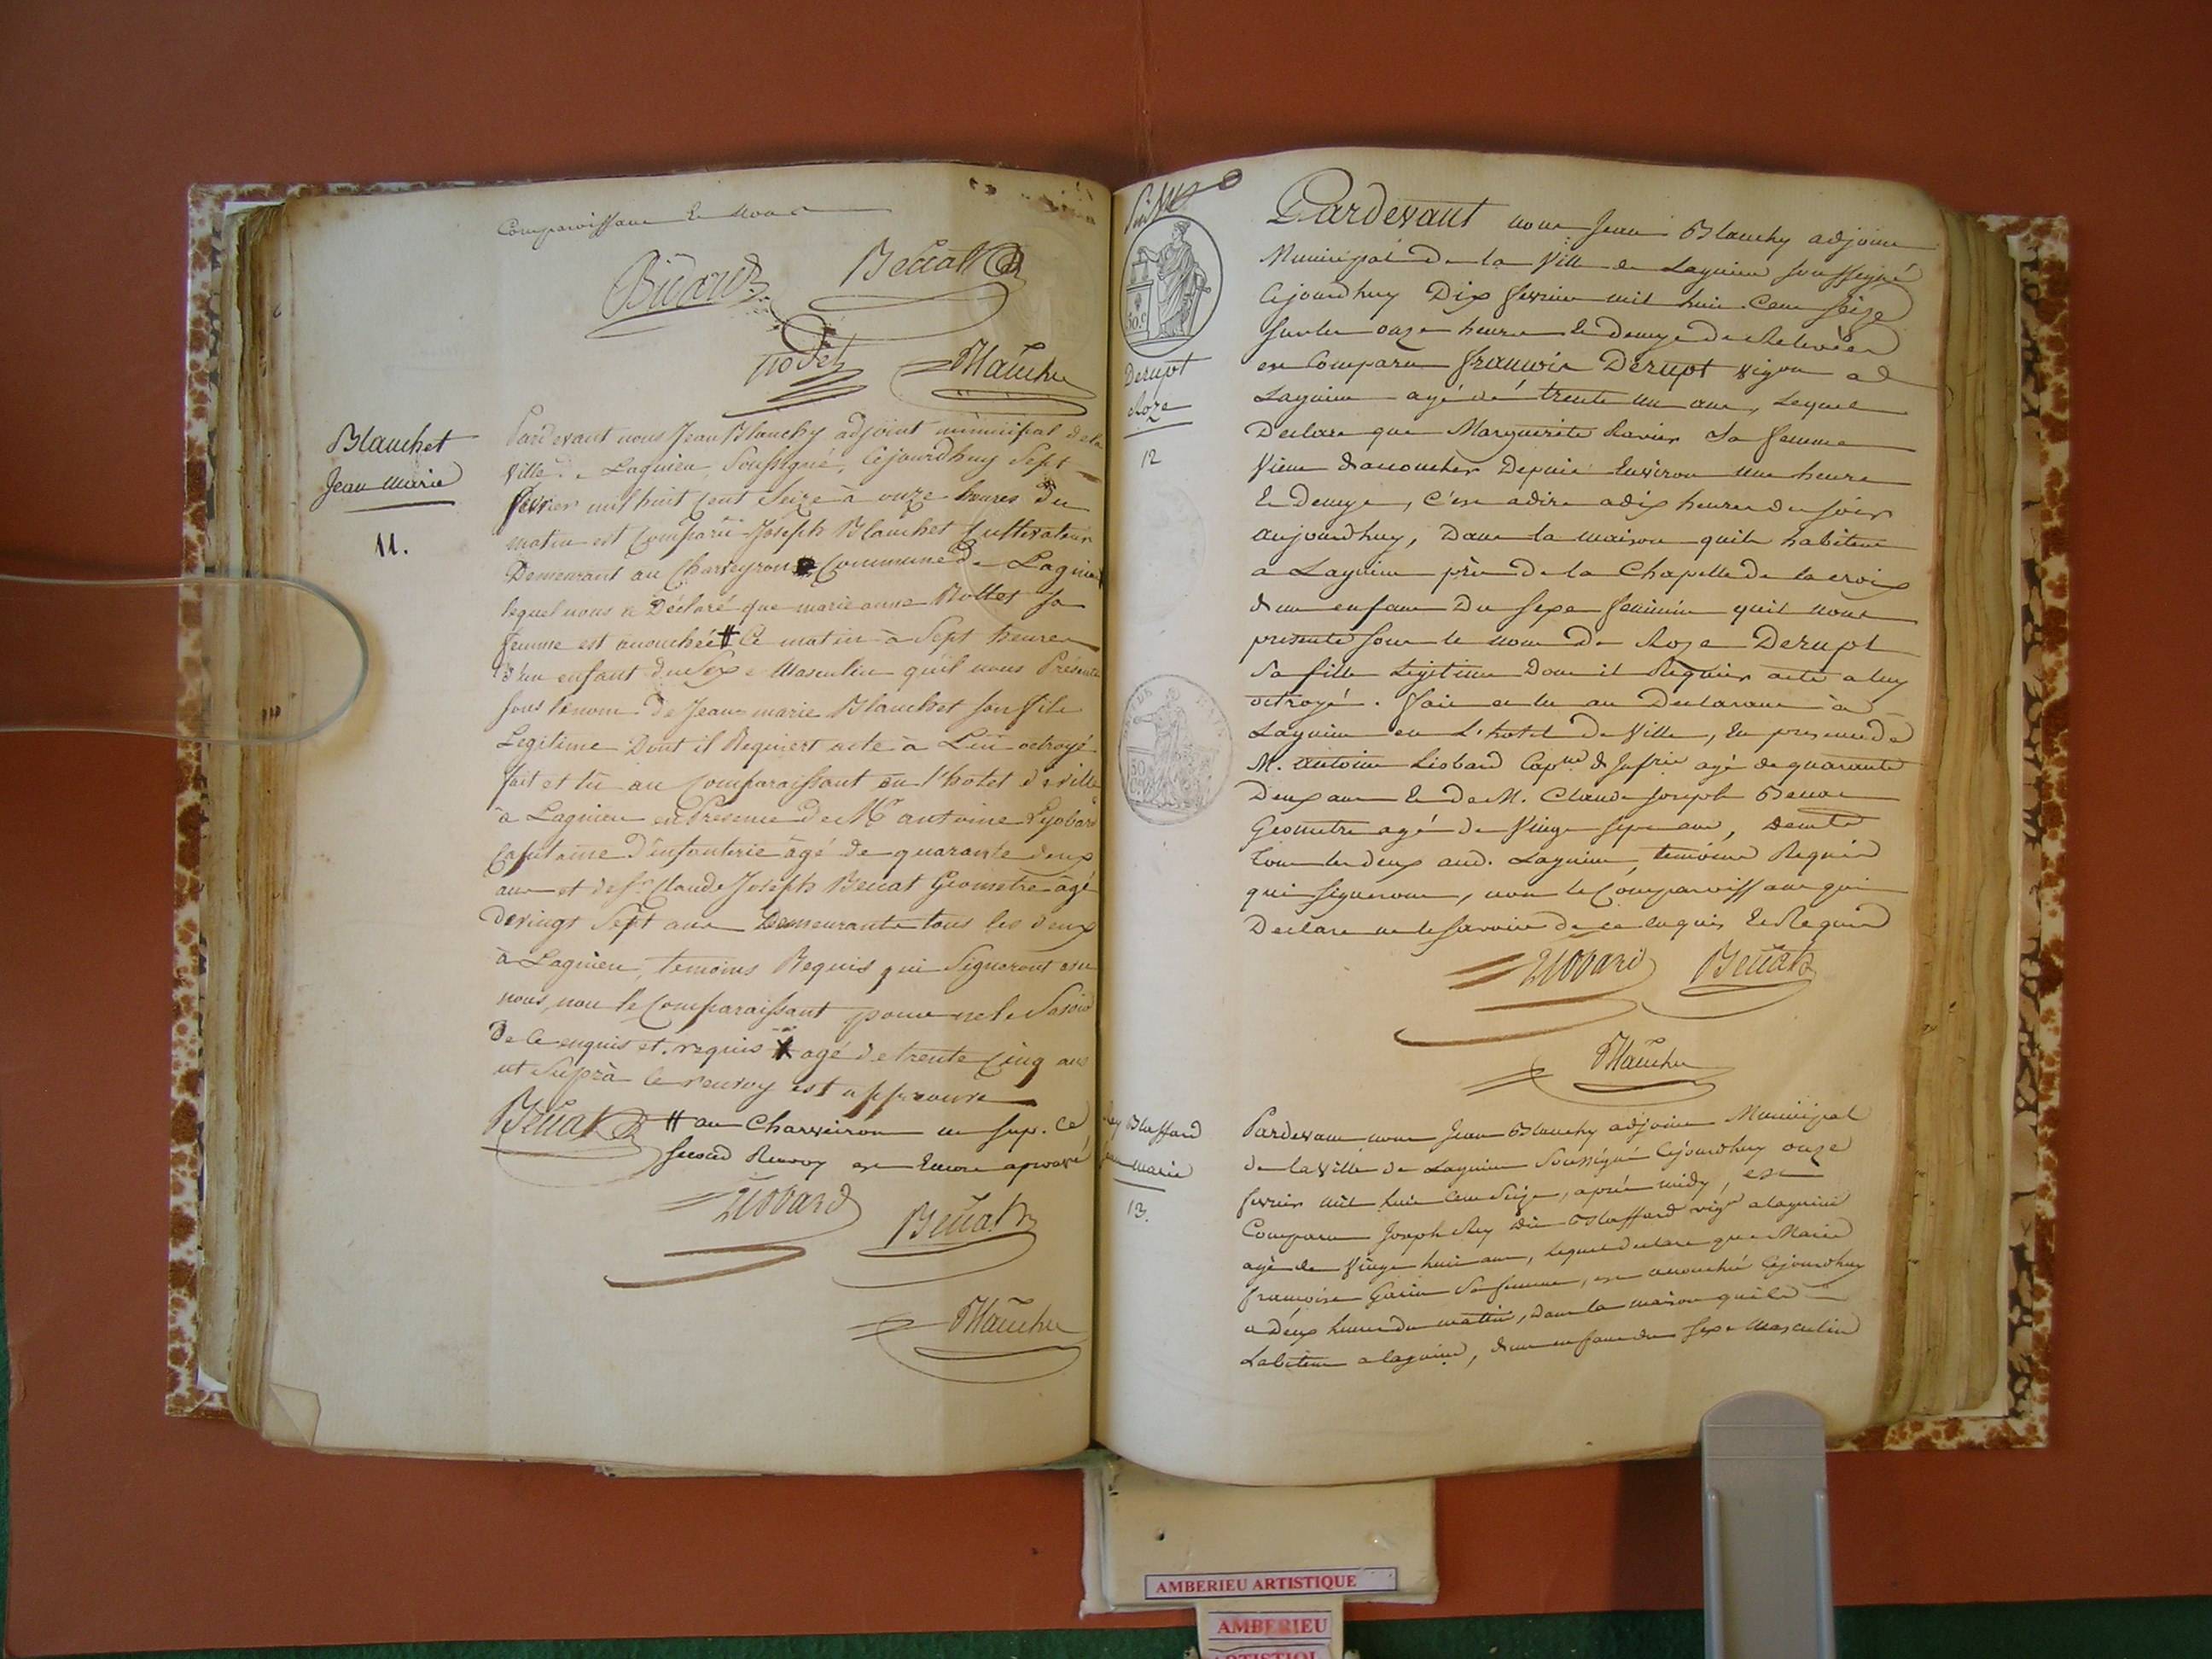 Comparoissans & nous
Bidard Beccat
Trodet Blanchy
Blanchet
Jean marie
11.
Pardevant nous Jean Blanchy adjoint municipal dela
ville de Lagnieu Soussigné, Cejourdhuy Sept
fevrier mil huit Cent Seize à onze heures du
matin est Comparu Joseph Blanchet Cultivateur
Demeurant au Charveyron Commune de Lagnieu
lequel nous a Déclaré que marie anne Rollet sa
femme est accouchée # Ce matin à Sept heures
d'un enfant du Sexe Masculin qu'il nous Présente
sous lenom de Jean-marie Blanchet son fils
Legitime Dont il Requiert acte à Lui octroyé
fait et lu au Comparaissant en l'hotel de ville
à Lagnieu en Présence De Mr antoine Lyobard
Capitaine D'infanterie âgé de quarante deux
ans et de Sr Claude Joseph Beccat Géometre âgé
de vingt Sept ans Demeurants tous les deux
à Lagnieu, temoins Requis qui Signeront avec
nous, non le Comparaissant pour ne le Savoir
De Ce enquis et requis X agé de trente Cinq ans
ut Suprà le renvoy est approuvé
Beccat # au Charveiron ut sup. Ce
second Renvoy est Encore aprouvé
Liobard Beccat
Blanchy
50.c
Derupt
Roze
12
Pardevant nous Jean Blanchy adjoint
Municipal de la Ville de Lagnieu soussigné
Cejourdhuy Dix fevrier mil huit Cent seize
sur les onze heures & demye de Relevée
est Comparu francois Derupt vigon a
Lagnieu agé de trente un ans, Lequel
Declare que Marguerite Ravier sa femme
Vient daccoucher Depuis Environ une heure
& demye, C'est adire adix heures du soir
aujourdhuy, Dans la maison quils habitent
a Lagnieu près de la Chapelle de la croix
dun enfant Du sexe feminin quil nous
presente sous le nom De Roze Derupt
Sa fille Legitime Dont il Requier acte a luy
octroyé. Fait et lu au Declarant à
Lagnieu en L'hotel De Ville, En presence de
M. antoine Liobard Capne d'Infrie agé de quarante
Deux ans & de M. Claude Joseph Beccat
Geometre agé de Vingt sept ans, Demts
Tous les deux aud. Lagnieu, temoins Requis
qui signeront, non le Comparoissant qui
Declare ne le savoir de ce enquis & Requis
Liobard Beccat
Blanchy
Rey Blaffard
marie
13.
Pardevant nous Jean Blanchy adjoint Municipal
de la Ville de Lagnieu Soussigné Cejourdhuy onze
fevrier mil huit Cent Seize, après midy, est
Comparu Joseph Rey dit Blaffard vigr a lagnieu
agé de Vingt huit ans, lequel declare que Marie
francoise Garin sa femme, est accouchée Cejourdhuy
a deux heures du mattin, dans la maison quils
habitent a lagnieu, dun enfant du sexe Masculin
AMBERIEU ARTISTIQUE
AMBERIEU
ARTISTIQU